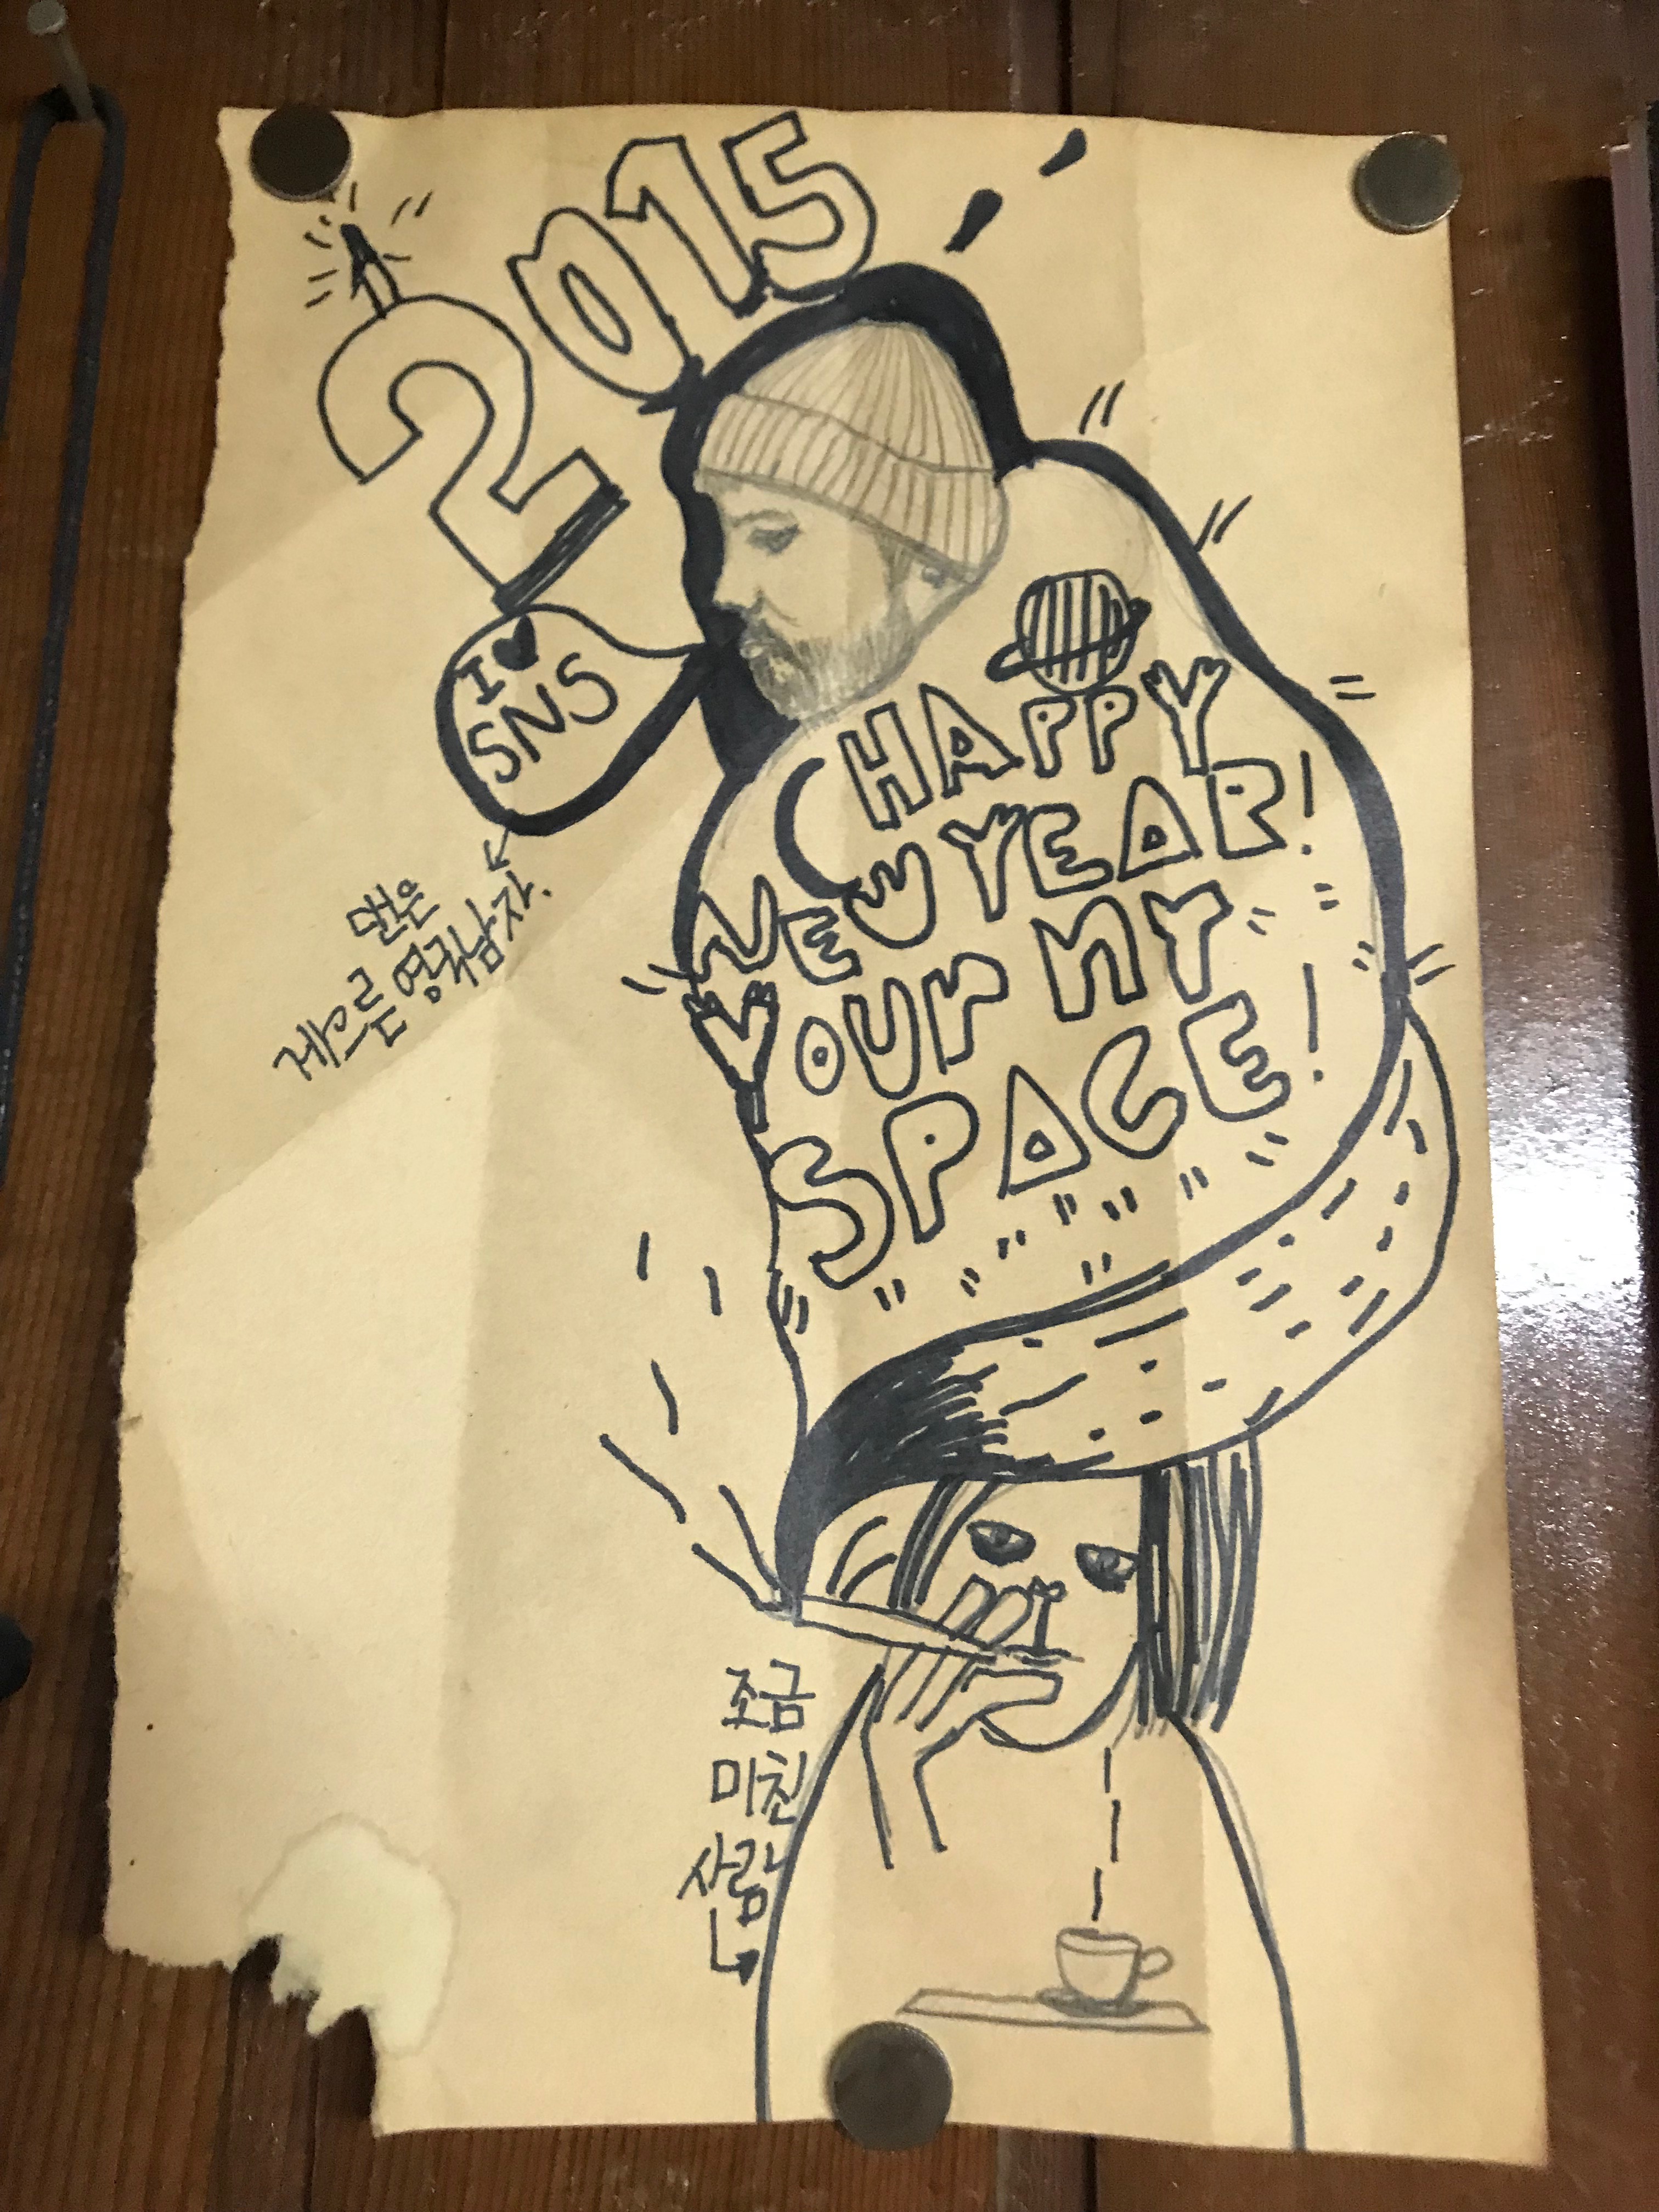 2015
I ♥
SNS
댄은
게으른 영국남자.
HAPPY
NEW YEAR!
YOUR MY
SPACE!
조금
미친
사람